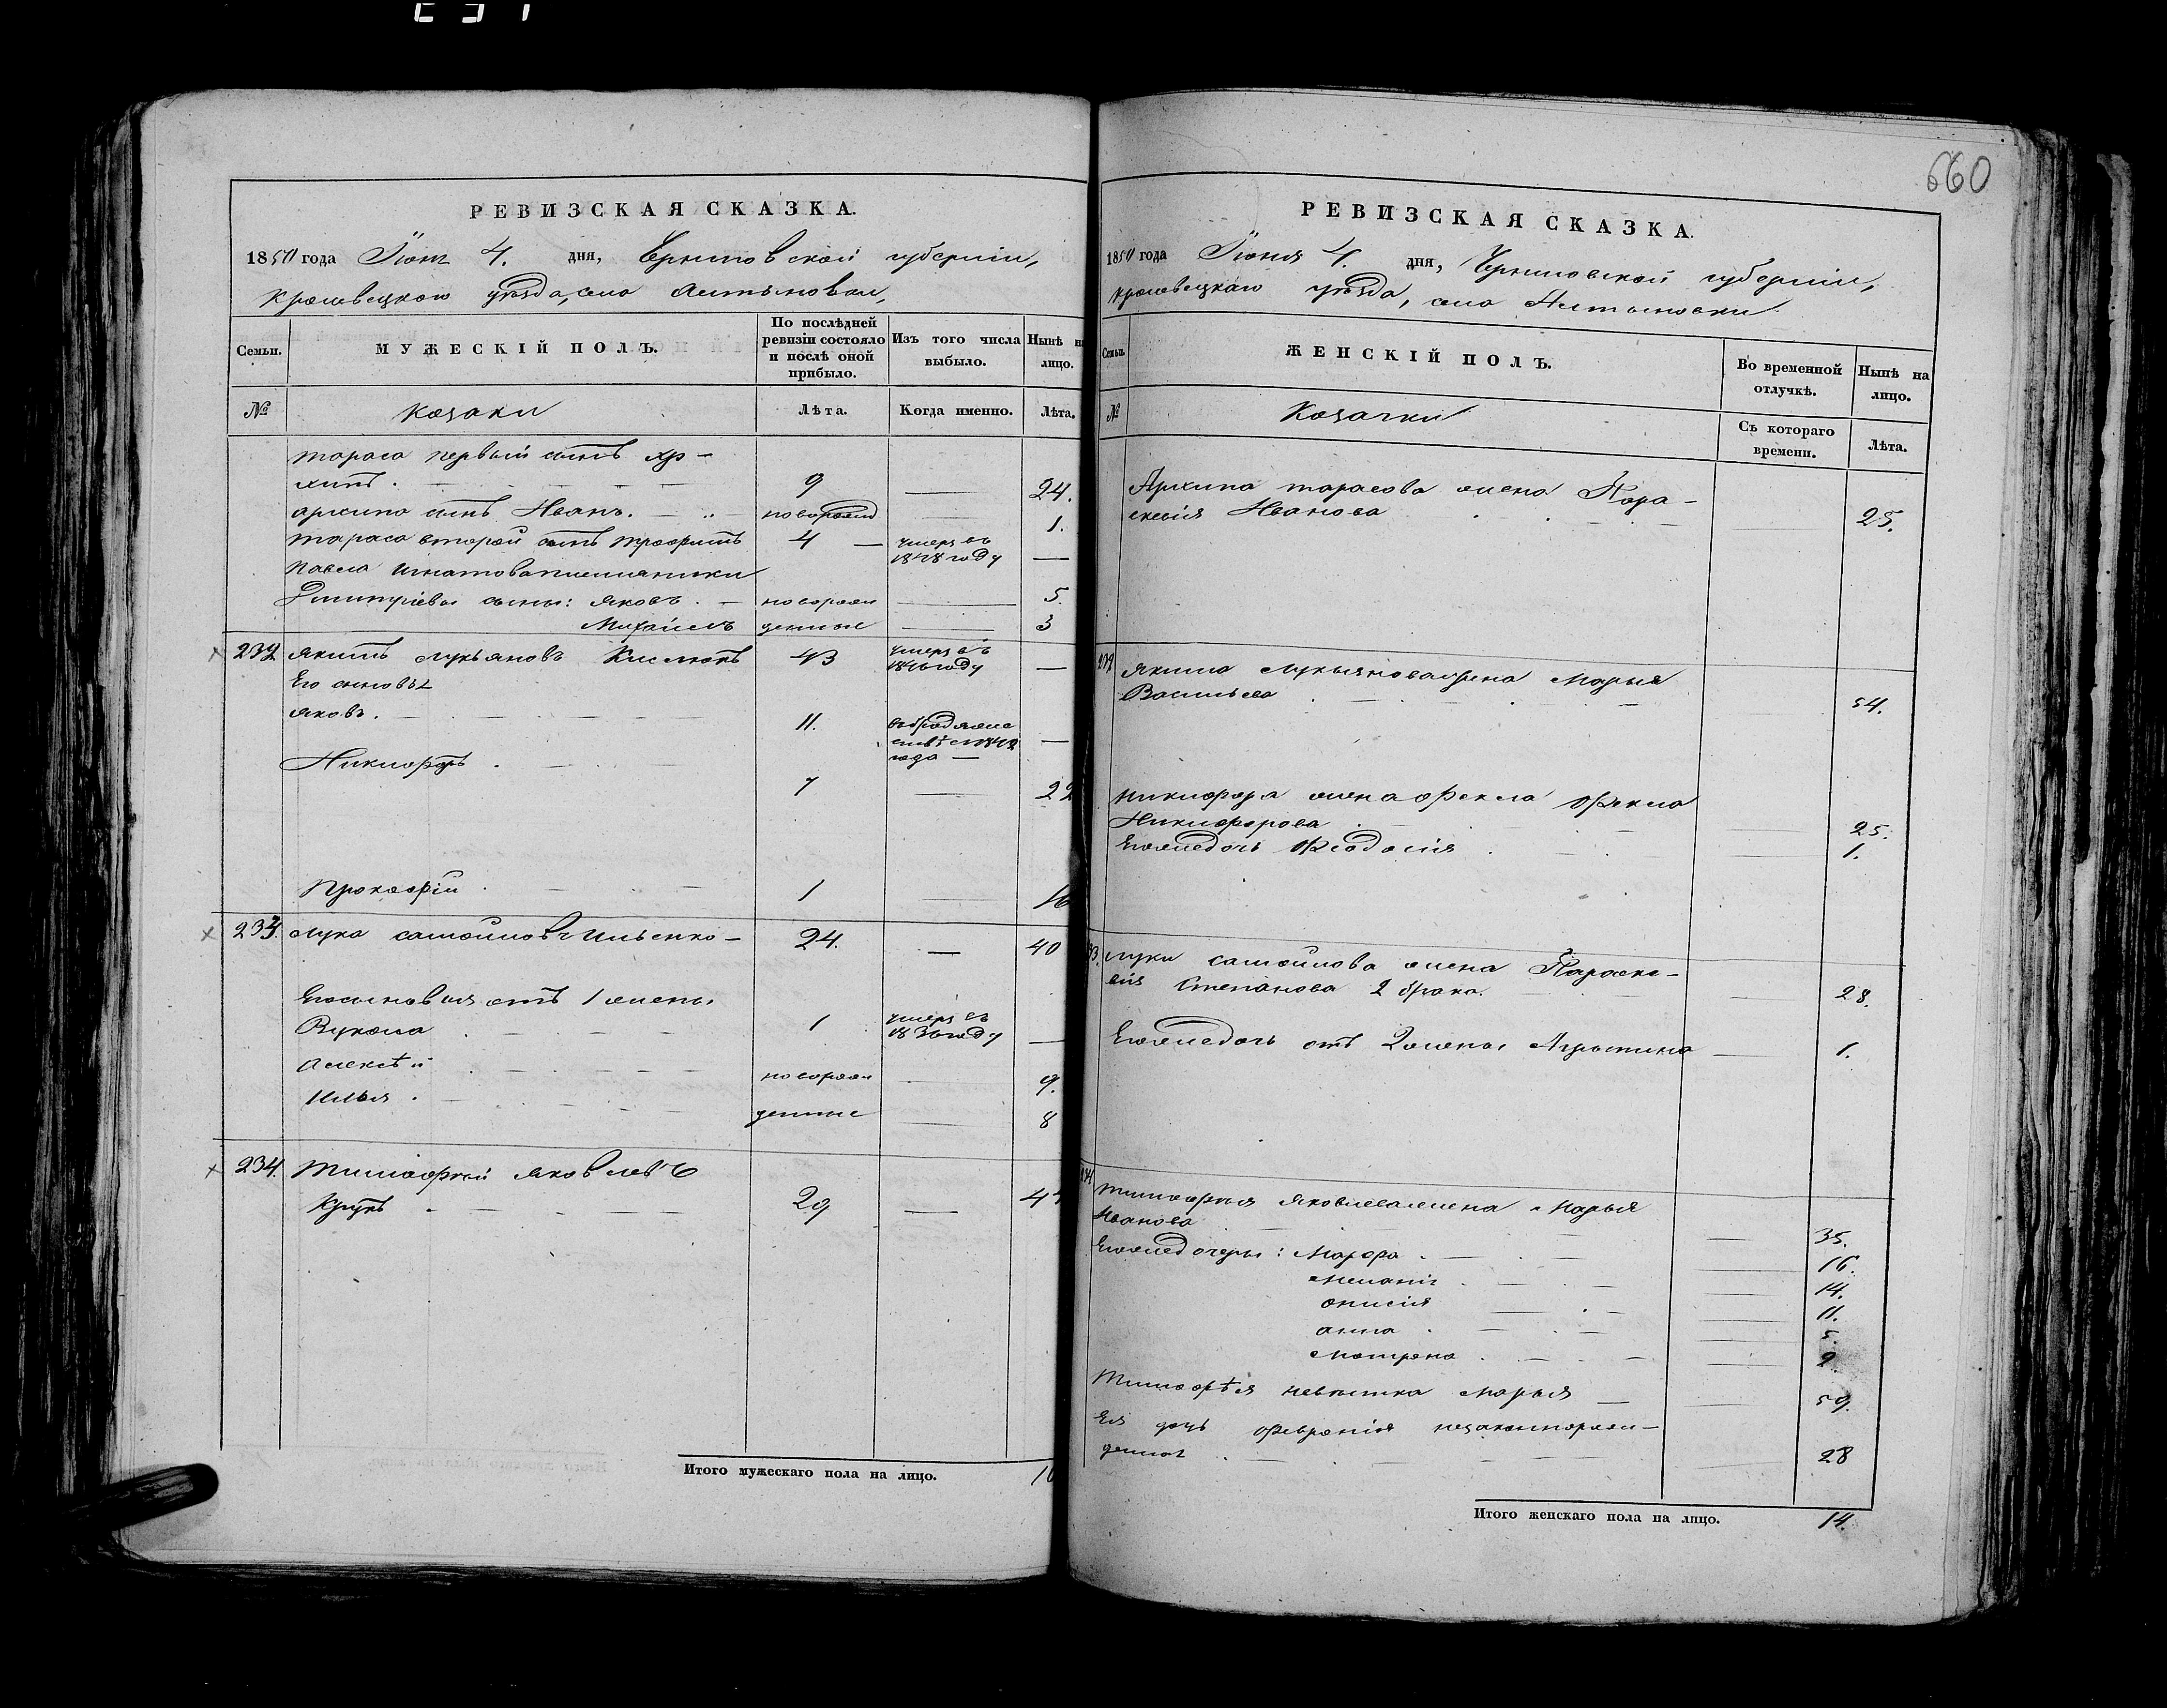 660
РЕВИЗСКАЯ СКАЗКА.
1850 года Іюня 4. дня, Черниговской губерніи,
Кролевецкаго уѣзда, села Алтыновки,
Семьи.
МУЖЕСКІЙ ПОЛЪ.
По послѣдней ревизіи состояло и послѣ оной прибыло.
Изъ того числа выбыло.
Нынѣ на лицо.
№
Козаки
Лѣта.
Когда именно.
Лѣта.
Тараса первый сынъ Ар-
хипъ. 9 — 24.
Архипа сынъ Иванъ. новорожд — 1.
Тараса второй сынъ Трофимъ 4 — умеръ въ 1848 году —
Павла Игнатова племянники
Дмитріевы сыны: Яковъ. новорож 5.
Михаилъ денные 3
232 Якимъ Лукьяновъ Кислякъ 43 умеръ въ 1846 году —
Его сыновья
Яковъ. 11. —
года —
Никифоръ 7 — 22
Прокофій 1 — 16
233. Лука Самойловъ Ильенко — 24. — 40
Его сыновья отъ 1 жены
Вукола 1 умеръ въ 1836 году —
Алексѣй новорож 9.
Илья. денные 8
234. Тимофей Яковлевъ
29 — 44
Итого мужескаго пола на лицо. 10
РЕВИЗСКАЯ СКАЗКА.
1850 года Іюня 4. дня, Черниговской губерніи,
Кролевецкаго уѣзда, села Алтыновки
Семьи.
ЖЕНСКІЙ ПОЛЪ.
Во временной отлучкѣ.
Нынѣ на лицо.
№
Козачки
Съ котораго времени.
Лѣта.
Архипа Тарасова жена Пара-
скевія Иванова 25.
232 Якима Лукьянова жена Марья
Васильева 54.
Никифора жена Фекла Фекла
Никифорова 25.
Его же дочь Феодосія 1.
233. Луки Самойлова жена Параске-
вія Степанова 2 брака. 28.
Его же дочь отъ 2 жены 1.
234 Тимофея Яковлева жена Марья
Иванова 35.
Его же дочери: Марфа 16.
Меланія 14.
Онисія 11.
Анна 5.
Матрена 2
Тимофѣя невѣстка Марья 59.
Ея дочь Февронія незаконнорож-
денная 28
Итого женскаго пола на лицо. 14.